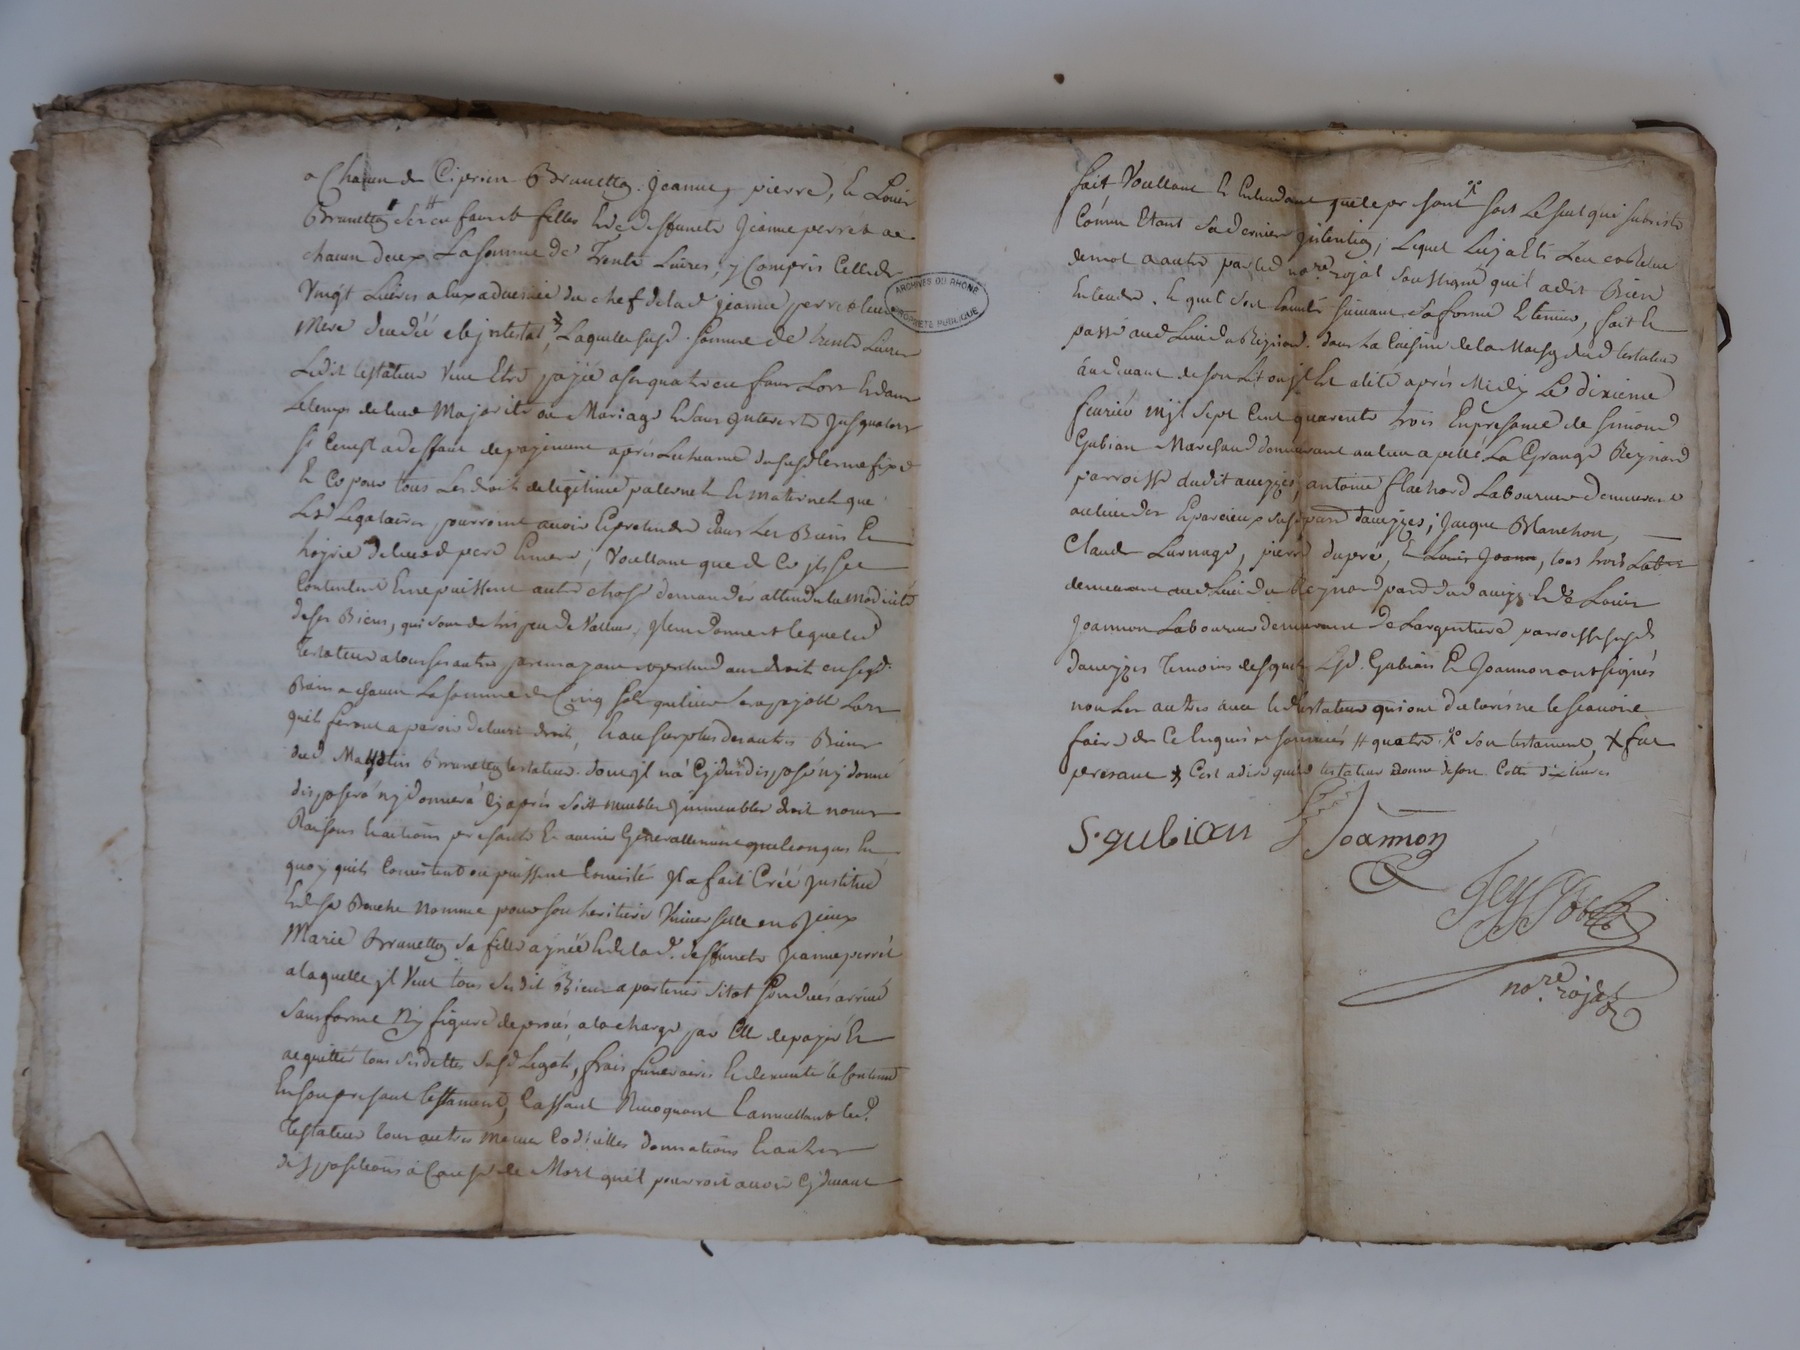 a Chacun de Ciprien Brunetton. Jeanne, pierre, et Louis
Brunetton ses enfants et filles et de deffuncte Jeanne perret a
chacun deux, La somme de Trente Livres, y Compris Celle de
Vingt Livres a eux advenüe du chef de lad. jeanne perret leur
Mere decedée abjntestat, Laquelle susd. somme de trente Livres
Ledit testateur veut Etre payée a ses quatre enfans Lors et dans
Letemps de leur Majorité ou Mariage et sans jnterests jusqualors
si Cenest a deffaut de payement après Lecheance du susd terme fixé
Et Ce pour tous Les droits de legitime paternels et maternels que
Lesd Legataires pourroint avoir et pretendre dans Les Biens et
hoyrie de leursd pere et mere, Voullant que de Ce jls soient
Contents et Ne puissent autre chose demander attendu la modicité
de ses Biens, qui sont de tres peu de Valleur, et legue led
Testateur a tous ses autres parens ayant ou pretendant droit en sesd.
Biens a chacun La somme de Cinq sols qui leur sera payable Lors
quils feront aparoir de leurs droits, et au surplus des autres Biens
dud Brunetton testateur. dont jl na Cydevt disposé ny donné
disposera ny donnera Cy après soit meubles jmmeubles droits noms
Raisons et actions presents et avenir Generallement quelconques en
quoy quils Consistent ou puissent Consister jl a fait Créé jnstitué
Et de sa Bouche Nommé pour son heritiere Universelle
Marie Brunetton sa fille aynée et de lad. deffuncte Jeanne perret
a laquelle jl Veut tous sesdit Biens apartenir sitot son deces arrivé
Sans forme Ny figure de procès a la charge par Elle de payer Et
acquitter tous ses dettes susd Legats, frais funeraires et dexecuter le Contenu
En son present testament, Cassant Revoquant et annullant led.
Testateur tous autres Codicilles donnations et autres
dispositions à Cause de Mort quil pourroit avoir Cydevant
fait Voullant Et Entendant que le present soit Le seul qui subsiste
Comme Etant sa derniere jntention, Lequel Luy a Eté Leu
de mot a autre par led no.re royal soussigné quil a dit Bien
Entendre. suivant sa forme Et teneur, fait Et
passé aud Lieu du Reynard. dans La Cuisine de la Maison dud testateur
au devant de son Lit ou jl Est alité après Midy Le dixieme
feuvrier mil sept Cent quarente trois En presence de Simond
Gubian Marchand demeurant au lieu apellé La Grange Reynard
parroisse dudit aveyzes, antoine flachard Laboureur demeurant
au lieu des susd parr d'aveyzes; Jacque Blanchon,
Claude Lurnage, pierre dupré, et Louis Joanon, tous trois Lab.rs
demeurant aud Lieu du Reynard parr dud aveyz Et de Louis
Joannon Laboureur demeurant de Largentiere parroisse susd
daveyzes Temoins desquels Lesd. Gubian Et Joannon ont signés
non Les autres avec led testateur qui ont declarés ne le scavoir
faire de Ce Enquis et sommés # quatre. son testament, X fut
presant X Cest a dire que led testateur donne de son Cotté dix livres
S. gubian Joannon
no.re royal
ARCHIVES DU RHONE
PROPRIÉTÉ PUBLIQUE